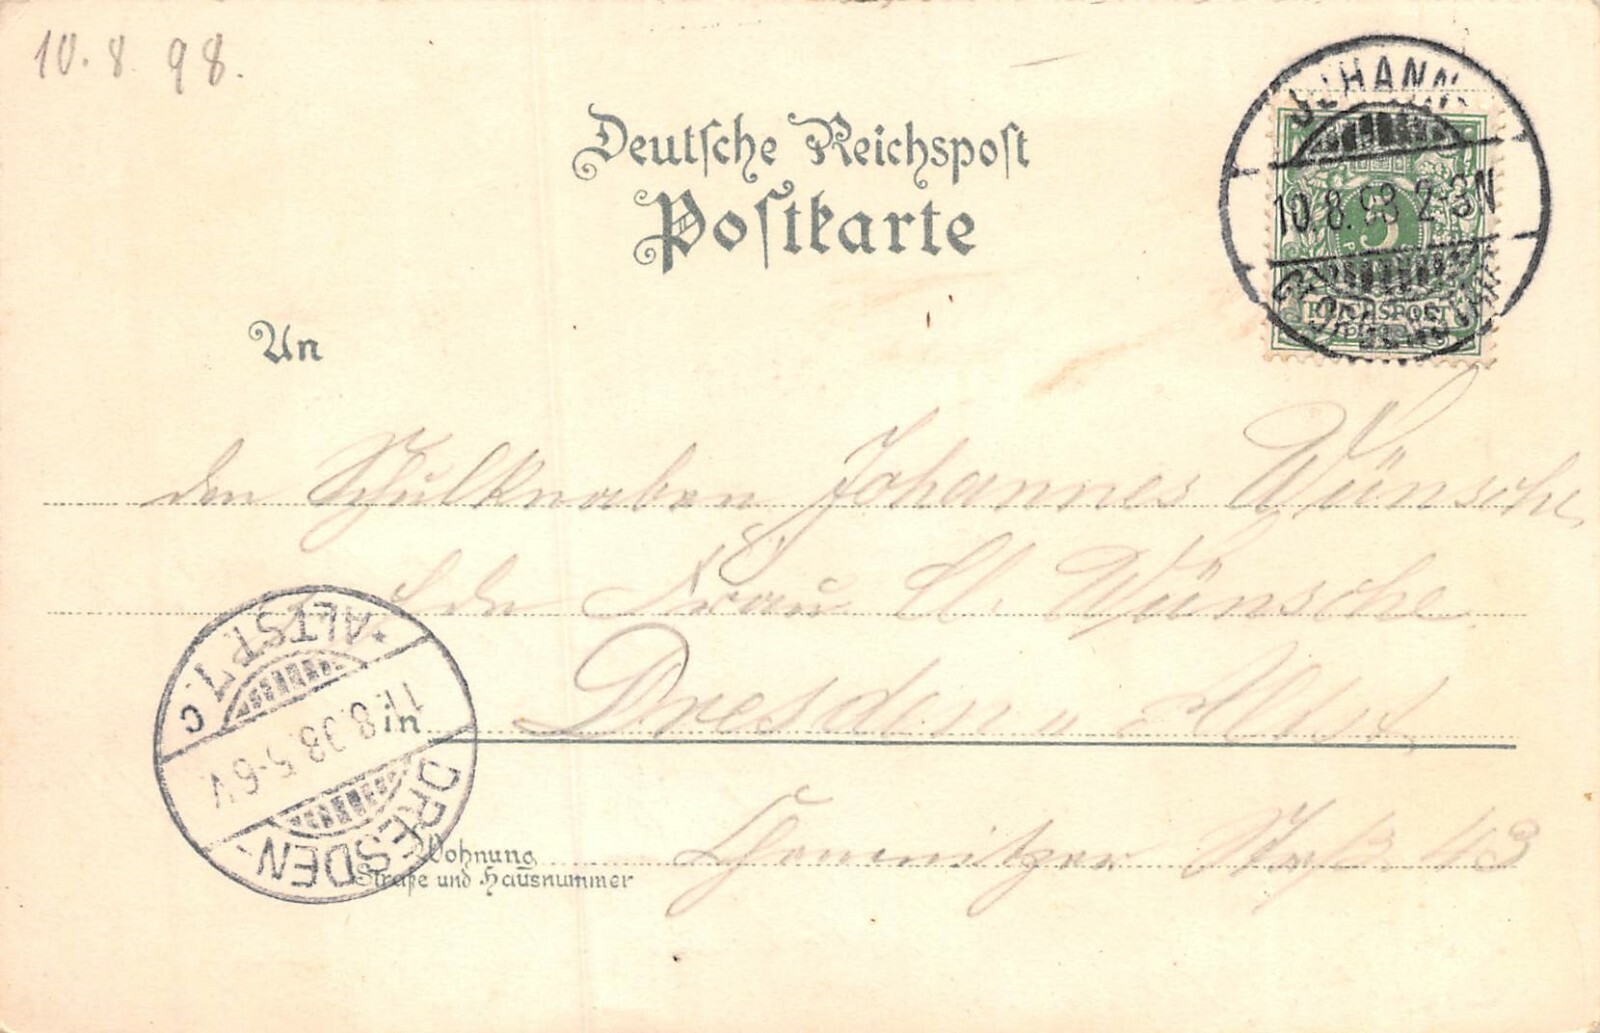 10.8.98.
Deutsche Reichspost
Postkarte
JOHANN
10.8.98 2-3N
REICHSPOST
An
den Schulknaben Johannes Wünsche
Frau Cl. Wünsche
in Dresden Altst.
Wohnung Chemnitzer Straß 43
Straße und Hausnummer
ALTST. 1. c
11.8.98. 5-6V
DRESDEN-